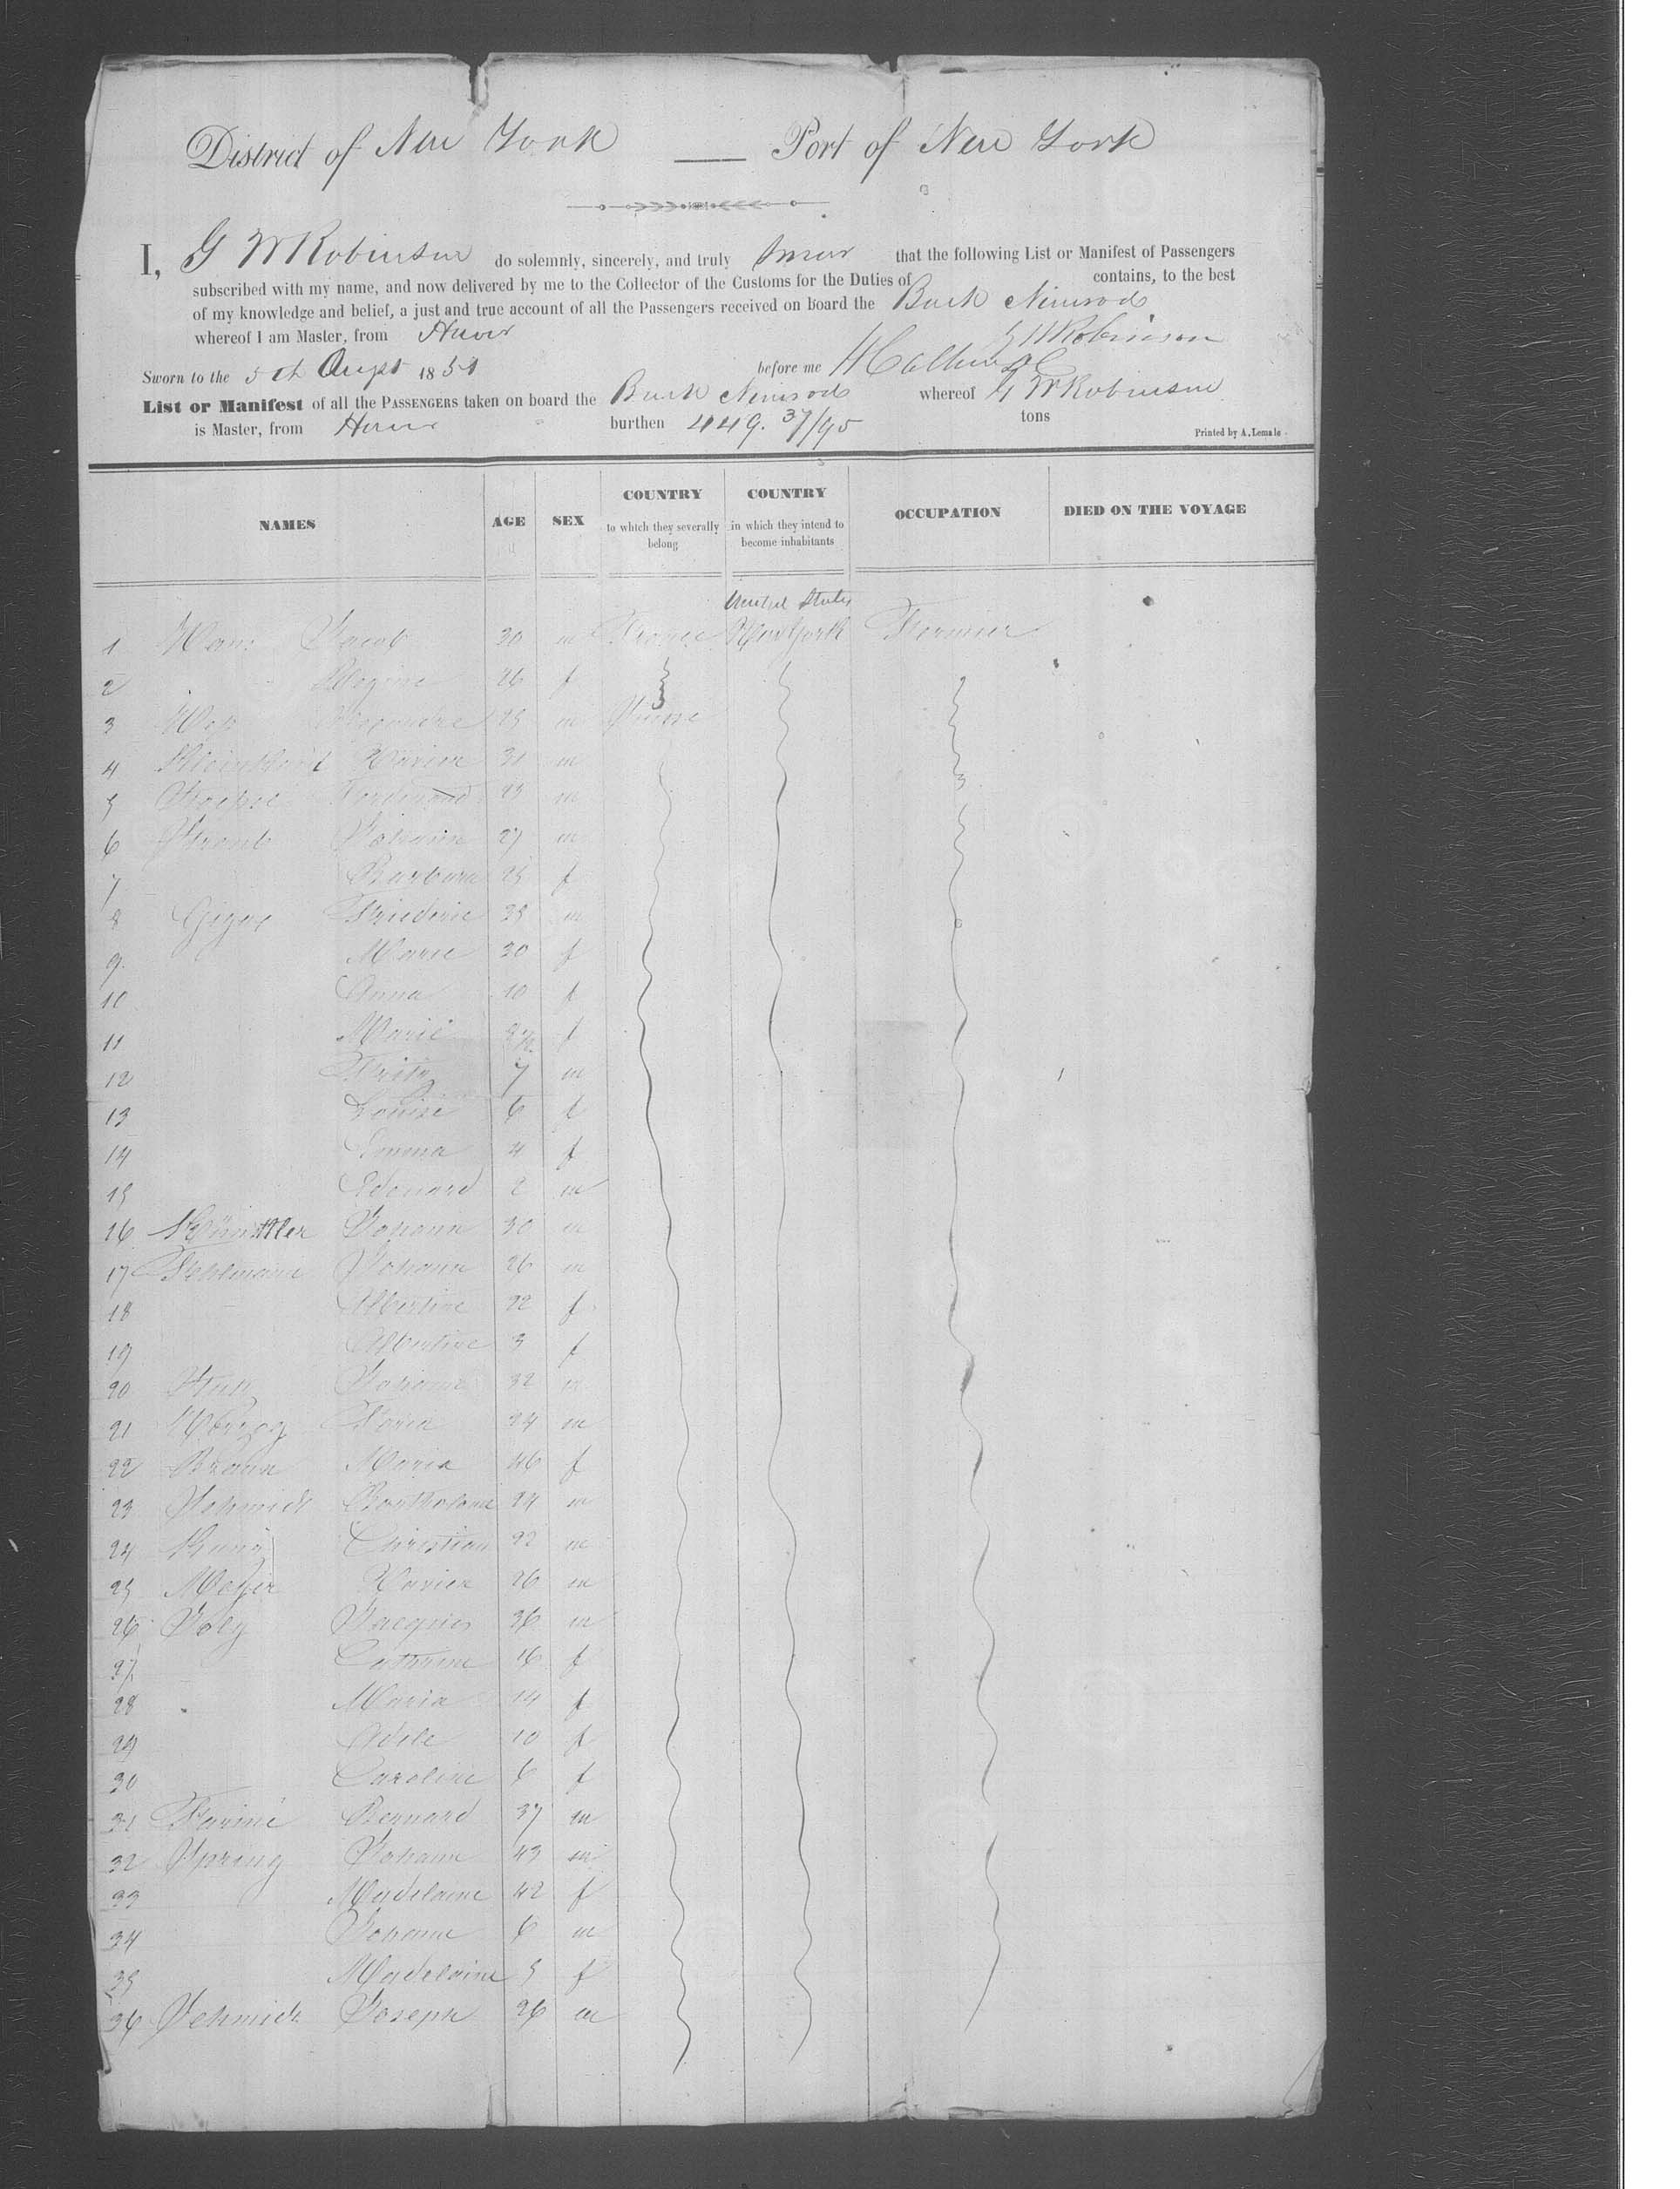 District of New York — Port of New York
I, G W Robinson do solemnly, sincerely, and truly swear that the following List or Manifest of Passengers
subscribed with my name, and now delivered by me to the Collector of the Customs for the Duties of contains, to the best
of my knowledge and belief, a just and true account of all the Passengers received on board the Bark Nimrod
whereof I am Master, from Havre G W Robinson
Sworn to the 5th Augst 1851 before me
List or Manifest of all the PASSENGERS taken on board the Bark Nimrod whereof G W Robinson
is Master, from Havre burthen 449. 37/95 tons
Printed by A. Lemale
NAMES AGE SEX COUNTRY to which they severally belong COUNTRY in which they intend to become inhabitants OCCUPATION DIED ON THE VOYAGE
United States
1 Jacob 30 m France New York Farmer
2 26 f
3 25 m
4 Xavier 31 m
5 Ferdinand 23 m
6 Johann 27 m
7 Barbara 25 f
8 Friederic 35 m
9 Marie 30 f
10 Anna 10 f
11 Marie f
12 Fritz 7 m
13 Louise 6 f
14 Emma 4 f
15 Edouard 2 m
16 Johann 30 m
17 Johann 26 m
18 Albertine 22 f
19 Albertine 3 f
20 Johann 32 m
21 Herzog 24 m
22 Braun Maria 46 f
23 Schmidt 24 m
24 Christian 22 m
25 Meyer Xavier 26 m
26 Joly Jacques 36 m
27 Catherine 16 f
28 Maria 14 f
29 Adele 10 f
30 Caroline 6 f
31 Bernard 37 m
32 Spring Johann 43 m
33 Madelaine 42 f
34 Johann 6 m
35 Madelaine 5 f
36 Schmidt Joseph 26 m